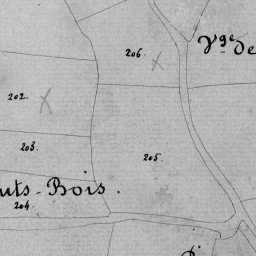 206.
Vge de
202.
203.
205.
uts-Bois.
204.